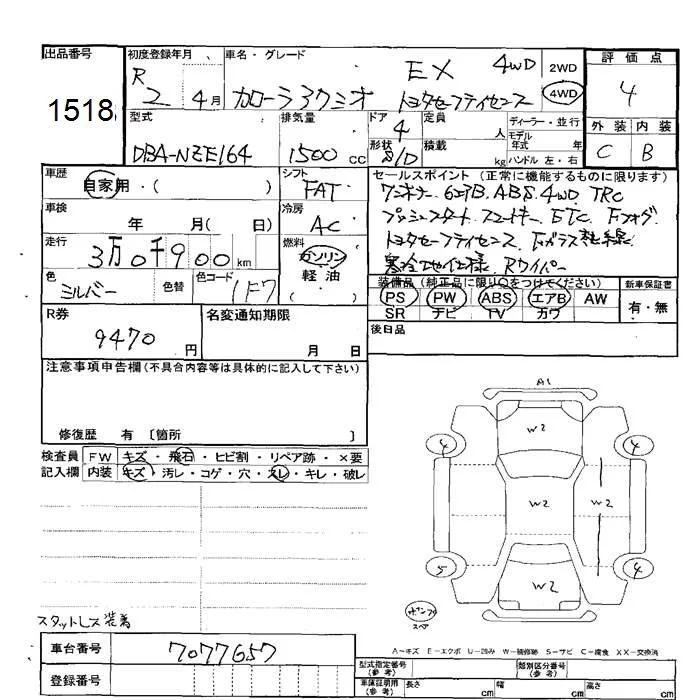 出品番号
1518
初度登録年月
R 2 4月
車名・グレード
EX 4WD
カローラアクシオ トヨタセーフティセンス
2WD
4WD
評価点
4
外装 内装
C B
型式
DBA-NZE164
排気量
1500 cc
ドア
4
形状
S/D
定員
人
積載
kg
ディーラー・並行
モデル
年式 年
ハンドル 左・右
車歴
自家用・( )
シフト
FAT
車検
年 月( 日)
冷房
AC
走行
3万0千900 km
燃料
ガソリン
軽油
( )
色
シルバー
色替
色コード
1F7
セールスポイント (正常に機能するものに限ります)
ワンオーナー 6エアB. ABS. 4WD. TRC
プッシュスタート スマートキー ETC. Fフォグ
トヨタセーフティセンス. Fガラス熱線
寒冷地仕様 Rワイパー
装備品 (純正品に限り○をつけてください)
PS PW ABS エアB AW
SR ナビ TV カワ
新車保証書
有・無
後日品
R券
9470 円
名変通知期限
月 日
注意事項申告欄(不具合内容等は具体的に記入して下さい)
修復歴 有 〔箇所 〕
検査員 FW キズ・飛石・ヒビ割・リペア跡・×要
記入欄 内装 キズ・汚レ・コゲ・穴・スレ・キレ・破レ
A1
W2
4 4
W2 W2
5 4
W2
ボンプ
スペア
A−キズ E−エクボ U−凹み W−補修跡 S−サビ C−腐食 XX−交換済
スタットレス装着
車台番号
7077657
登録番号
型式指定番号
(参考)
類別区分番号
(参考)
車庫証明用
(参考)
長さ cm
幅 cm
高さ cm